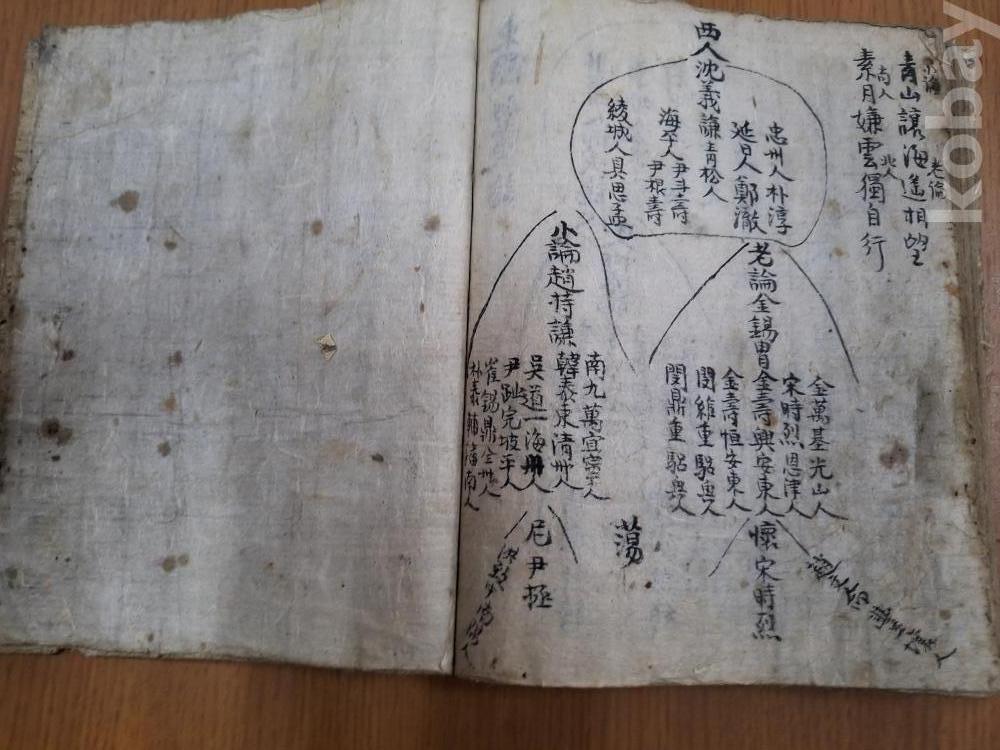 靑山讓海遙相望
老倫
素月嫌雲獨自行
南人
北人
西人沈義謙靑松人
忠州人朴淳
延日人鄭澈
海平人尹斗壽
尹根壽
綾城人具思孟
老論金錫胄
金萬基光山人
宋時烈恩津人
金壽興安東人
金壽恒安東人
閔維重驪興人
閔鼎重驪興人
懷宋時烈
蕩
小論趙持謙
南九萬宜寧人
韓泰東淸州人
吳道一海州人
尹趾完坡平人
崔錫鼎全州人
朴泰輔潘南人
尼尹拯
kobay